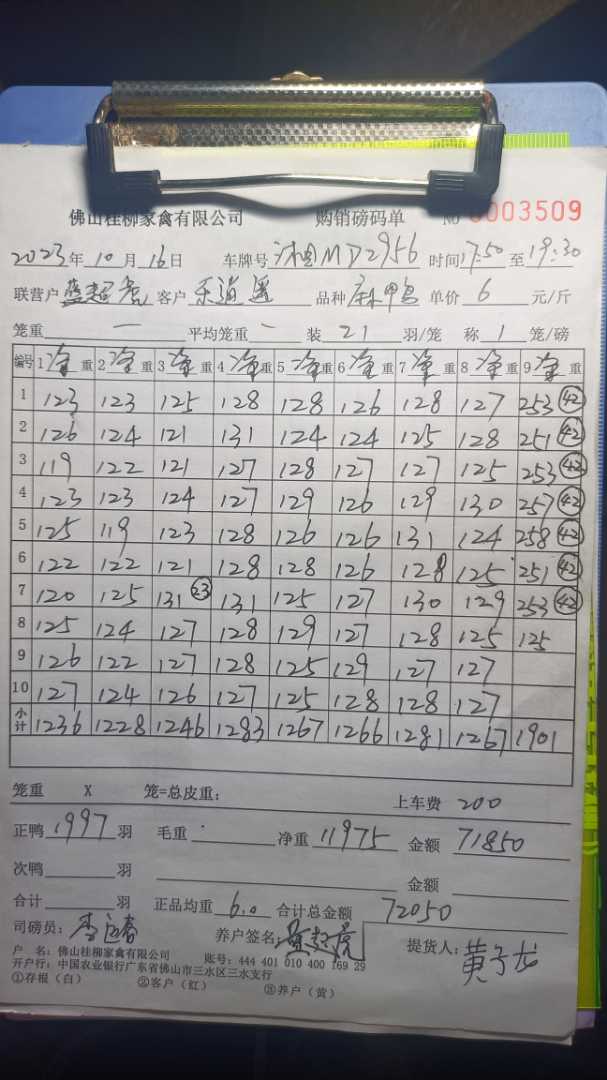 佛山桂柳家禽有限公司 购销磅码单 NO 0003509
2023年10月16日 车牌号 MD2956 时间17:50至19:30
联营户 盛超虎 客户 乐逍遥 品种 麻鸭 单价 6 元/斤
笼重 一 平均笼重 一 装 21 羽/笼 称 1 笼/磅
编号 1 净重 2 净重 3 净重 4 净重 5 净重 6 净重 7 净重 8 净重 9 净重
1 123 123 125 128 128 126 128 127 253 42
2 126 124 121 131 124 124 125 128 251 42
3 119 122 121 127 128 127 127 125 253 42
4 123 123 124 127 129 126 129 130 257 42
5 125 119 123 128 126 126 131 124 258 42
6 122 122 121 128 128 126 128 125 251 42
7 120 125 131 23 131 125 127 130 129 253 42
8 125 124 127 128 129 127 128 125 125
9 126 122 127 128 125 129 127 127
10 127 124 126 127 125 128 128 127
小计 1236 1228 1246 1283 1267 1266 1281 1267 1901
笼重 X 笼=总皮重： 上车费 200
正鸭 1997 羽 毛重 净重 11975 金额 71850
次鸭 羽 金额
合计 羽 正品均重 6.0 合计总金额 72050
司磅员： 养户签名： 盛超虎 提货人： 黄子龙
户 名：佛山桂柳家禽有限公司 账号：444 401 010 400 169 29
开户行：中国农业银行广东省佛山市三水区三水支行
①存根（白） ②客户（红） ③养户（黄）